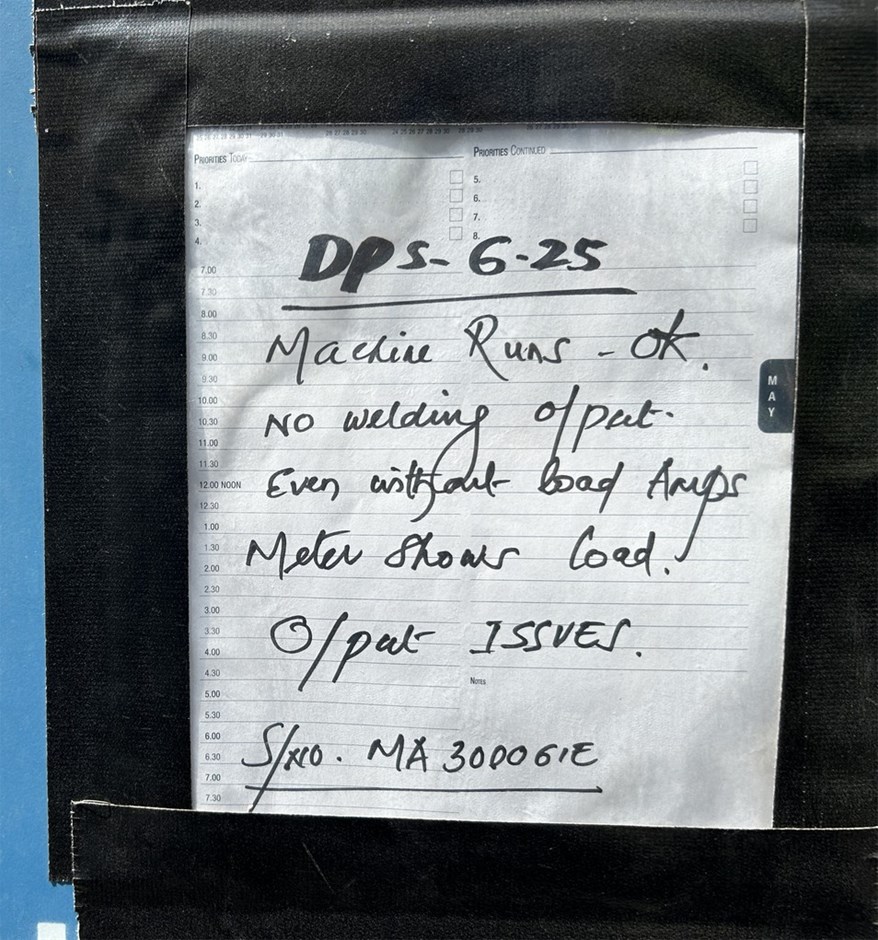 PRIORITIES TODAY
PRIORITIES CONTINUED
1.
2.
3.
4.
5.
6.
7.
8.
DPS-6-25
Machine Runs - OK.
NO welding o/put.
Even without load Amps
Meter Shows load.
O/put ISSUES.
S/NO. MA300061E
7.00
7.30
8.00
8.30
9.00
9.30
10.00
10.30
11.00
11.30
12.00 NOON
12.30
1.00
1.30
2.00
2.30
3.00
3.30
4.00
4.30
5.00
5.30
6.00
6.30
7.00
7.30
NOTES
MAY